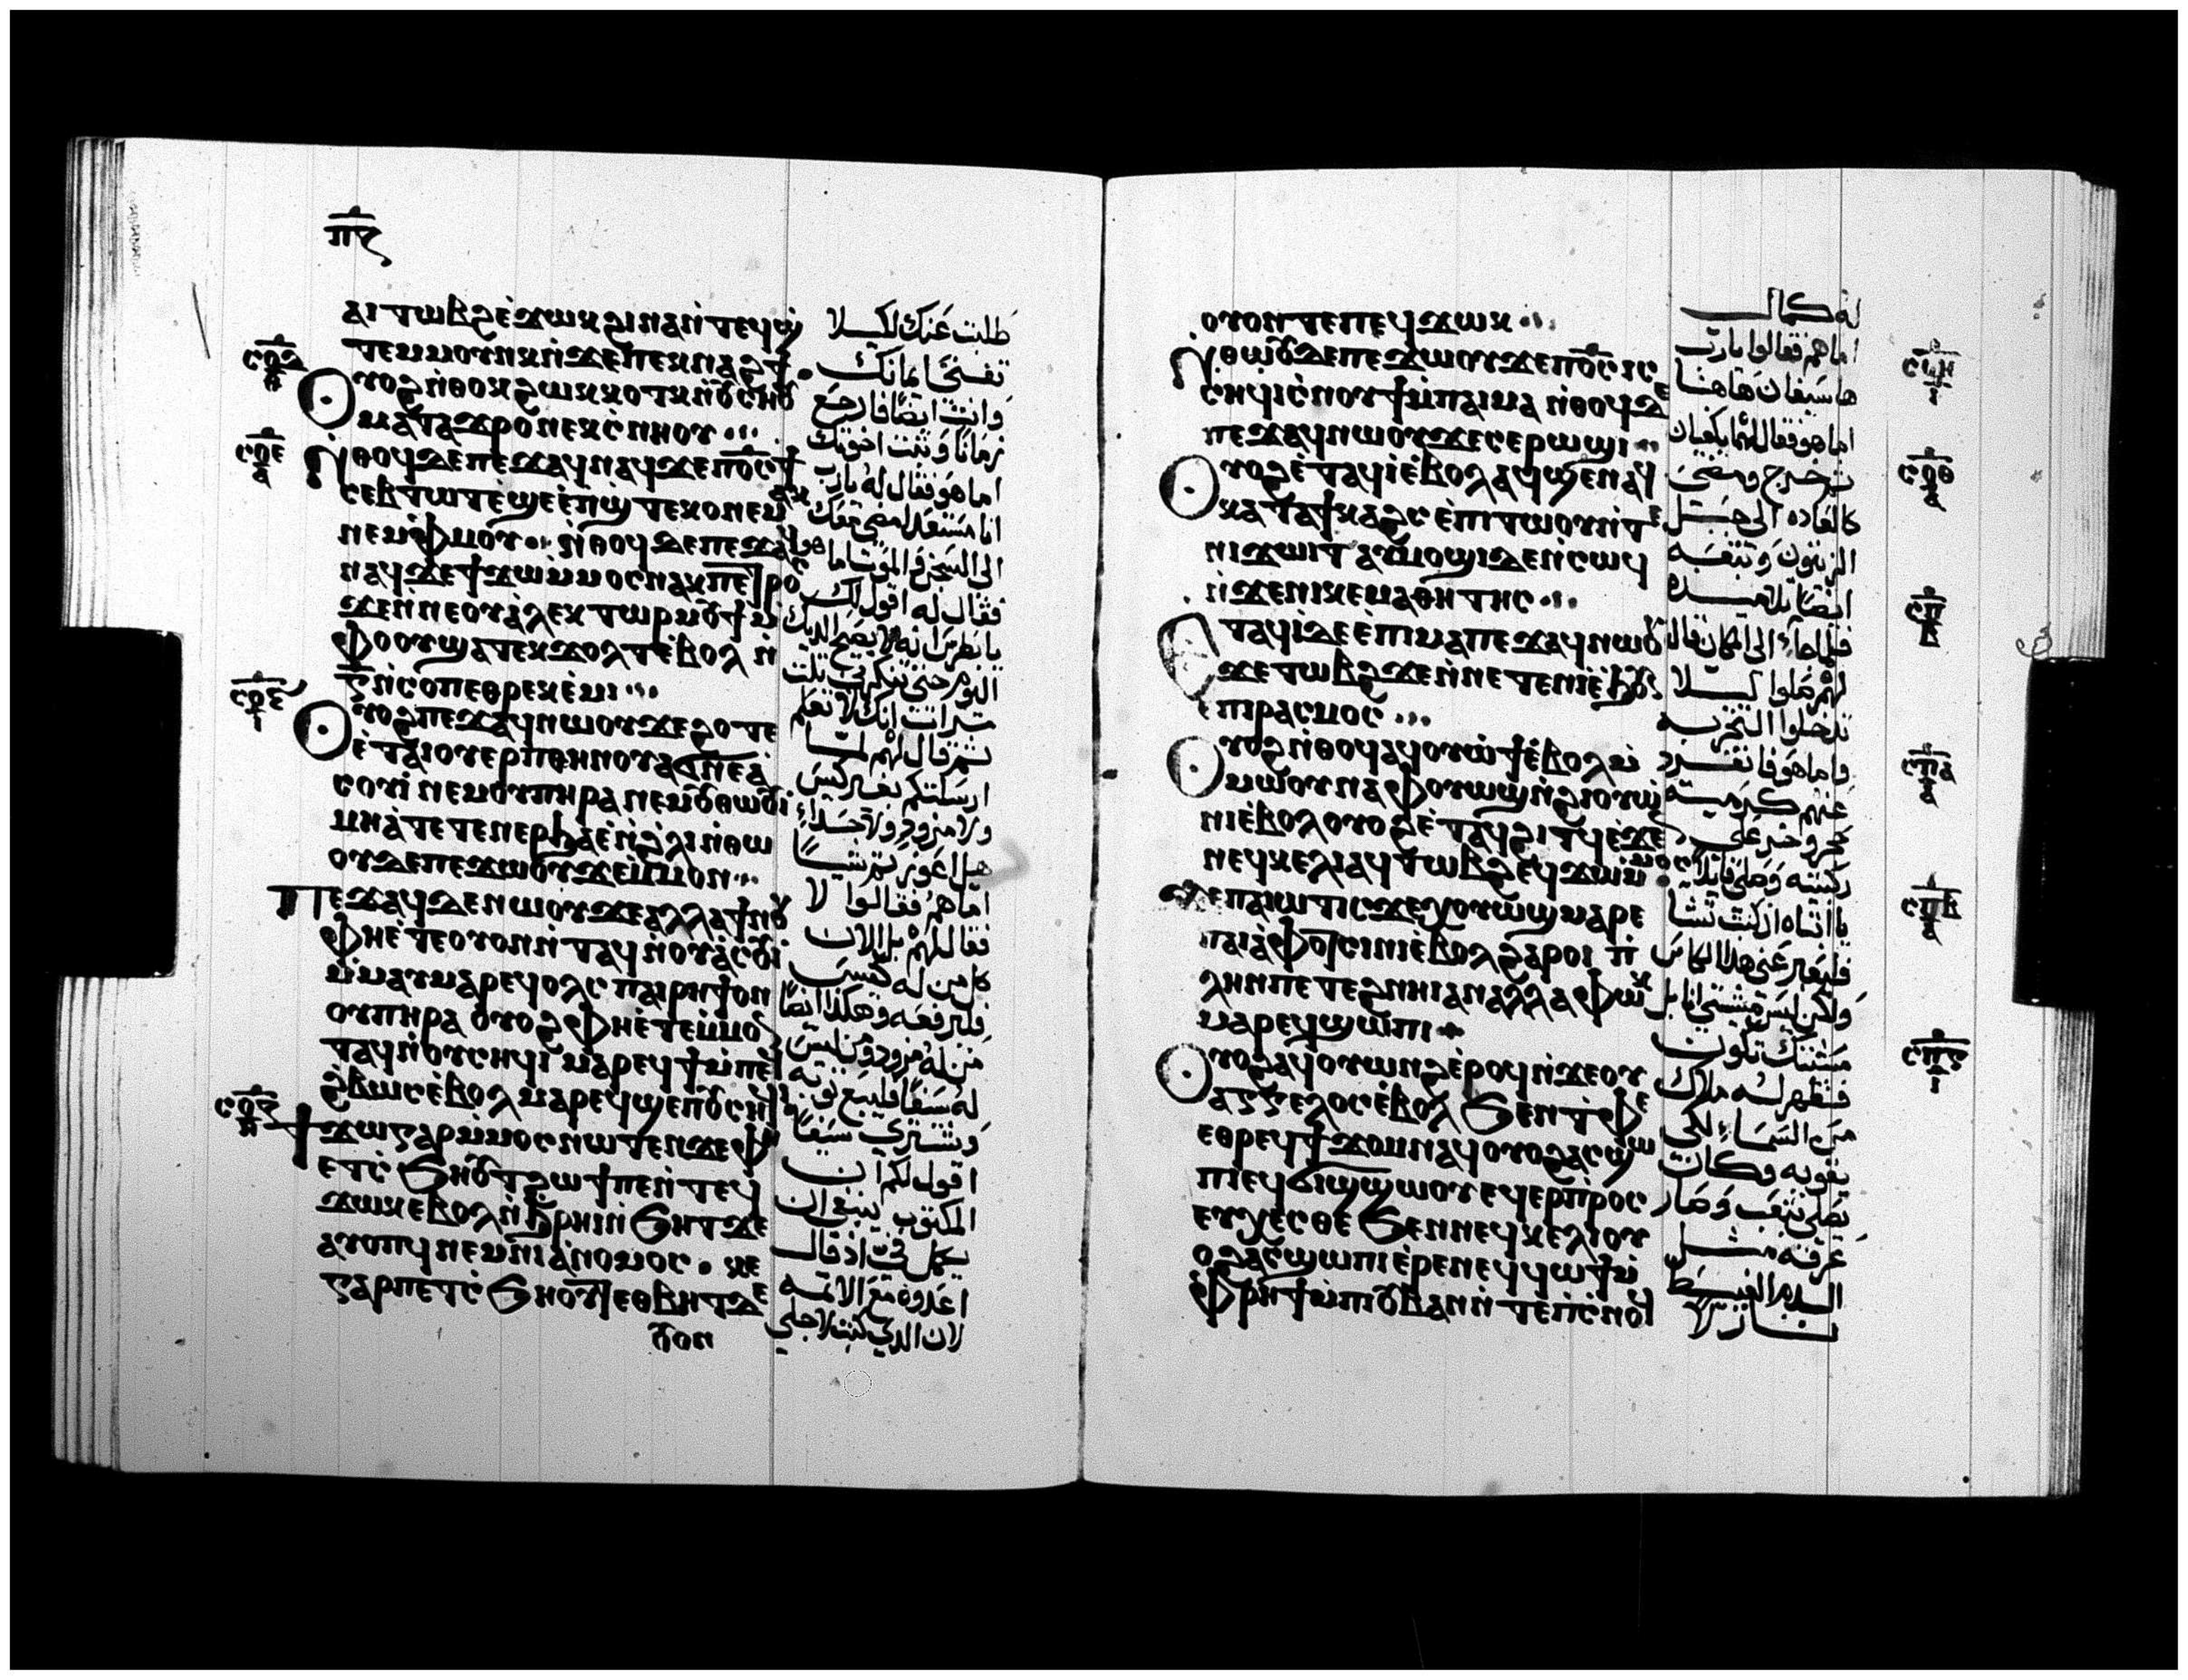 ⲁⲓⲧⲱⲃϩ ⲉ̀ϫⲱⲕ ϩⲓⲛⲁ ⲛ̀ⲧⲉϥϣ̀
ⲧⲉⲙⲙⲟⲩⲛⲕ ⲛ̀ϫⲉ ⲡⲉⲕⲛⲁϩϯ
ⲟⲩⲟϩ ⲛ̀ⲑⲟⲕ ϩⲱⲕ ⲕⲟⲧⲕ ⲛ̀ⲟⲩⲥⲏⲟⲩ
ⲙⲁⲧⲁϫⲣⲟ ⲛⲉⲕⲥ̀ⲛⲏⲟⲩ
ⲛ̀ⲑⲟϥ ⲇⲉ ⲡⲉϫⲁϥ ⲛⲁϥ ϫⲉ ⲡⲟ̅ⲥ̅ ϯ
ⲥⲉⲃⲧⲱⲧ ⲉ̀ϣⲉ ⲉ̀ⲡϣ̀ⲧⲉⲕⲟ ⲛⲉⲙⲁⲕ
ⲛⲉⲙ ⲉ̀ⲫⲙⲟⲩ ⲛ̀ⲑⲟϥ ⲇⲉ ⲡⲉϫⲁϥ
ⲛⲁϥ ϫⲉ ϯϫⲱ ⲙ̀ⲙⲟⲥ ⲛⲁⲕ ⲡⲉⲧⲣⲟⲥ
ϫⲉ ⲛ̀ⲛⲉ ⲟⲩⲁ̀ⲗⲉⲕⲧⲱⲣ ⲙⲟⲩϯ ⲙ̀
ⲫⲟⲟⲩ ϣⲁⲧⲉⲕϫⲟⲗⲧ ⲉ̀ⲃⲟⲗ ⲛ̀
ⲅ̅ ⲛ̀ⲥⲟⲡ ⲉⲑⲣⲉⲕⲉ̀ⲙⲓ
ⲟⲩⲟϩ ⲡⲉϫⲁϥ ⲛⲱⲟⲩ ϫⲉ ϩⲟⲧⲉ
ⲉ̀ⲧⲁⲓⲟⲩⲉⲣⲡ ⲑⲏⲛⲟⲩ ⲁϭⲛⲉ ⲁ̀
ⲥⲟⲩⲓ̀ ⲛⲉⲙ ⲟⲩⲡⲏⲣⲁ ⲛⲉⲙ ⲟⲩⲑⲱⲟⲩⲓ̀
ⲙⲏ ⲁ̀ⲧⲉⲧⲉⲛⲉⲣϧⲁⲉ̀ ⲛ̀ϩ̀ⲗⲓ ⲛ̀ⲑⲱ
ⲟⲩ ⲇⲉ ⲡⲉϫⲱⲟⲩ ϫⲉ ⲙ̀ⲙⲟⲛ
ⲡⲉϫⲁϥ ⲇⲉ ⲛⲱⲟⲩ ϫⲉ ⲁⲗⲗⲁ ϯⲛⲟⲩ
ⲫⲏ ⲉ̀ⲧⲉ ⲟⲩⲟⲛ ⲛ̀ⲧⲁϥ ⲛ̀ⲟⲩⲁ̀ⲥⲟⲩⲓ
ⲙ̀ⲙⲁⲩ ⲙⲁⲣⲉϥⲟⲗⲥ ⲡⲁⲓⲣⲏϯ ⲟⲛ
ⲟⲩⲡⲏⲣⲁ ⲟⲩⲟϩ ⲫⲏ ⲉ̀ⲧⲉ ⲙ̀ⲙⲟⲛ
ⲧⲁϥ ⲛ̀ⲟⲩⲥⲏϥⲓ ⲙⲁⲣⲉϥϯ ⲙ̀ⲡⲉϥ
ϩ̀ⲃⲱⲥ ⲉ̀ⲃⲟⲗ ⲙⲁⲣⲉϥϣⲉⲡ ⲟⲩⲥⲏϥⲓ
ϯϫⲱ ⲅⲁⲣ ⲙ̀ⲙⲟⲥ ⲛⲱⲧⲉⲛ ϫⲉ ⲫⲏ
ⲉⲧⲥ̀ϧⲏⲟⲩⲧ ϩⲱϯ ⲡⲉ ⲛ̀ⲧⲉϥ
ϫⲱⲕ ⲉⲃⲟⲗ ⲛ̀ϧ̀ⲣⲏⲓ ⲛ̀ϧⲏⲧ ϫⲉ
ⲁⲩⲟⲡϥ ⲛⲉⲙ ⲛⲓⲁ̀ⲛⲟⲙⲟⲥ ⲕⲉ
ⲅⲁⲣ ⲡⲉⲧⲥ̀ϧⲏⲟⲩⲧ ⲉⲑⲃⲏⲧ ϫⲉ
ⲟⲩⲟⲛ
طلبت عنك لكيلا
تفنى امانتك
وانت ايضا فارجع
زمانا وثبت اخوتك
اما هو فقال له يا رب
انا مستعد امضى معك
الى السجن والموت اما هو
فقال له اقول لك
يا بطرس انه لا يصيح الديك
اليوم حتى تنكرنى ثلث
مرات انك لا تعلم
ثم قال لهم لما
ارسلتكم بغير كيس
ولا مزود ولا حذاء
هل اعوزتم شيا
اما هم فقالوا لا
فقال لهم بل الان
كل من له كيس
فليرفعه وهكذا ايضا
من له مزود ومن ليس
له سيفا فليبيع ثوبه
ويشترى سيفا
اقول لكم ان
المكتوب ينبغى ان
يكمل فى اذ قال
اعدوه مع الاثمه
لان الذى كتب لاجلى
ⲟⲩⲟⲛⲧⲉ ⲡⲉϥϫⲱⲕ
ⲛ̀ⲑⲱⲟⲩ ⲇⲉ ⲡⲉϫⲱⲟⲩ ϫⲉ ⲡⲟ̅ⲥ̅ ⲓⲥ
ⲥⲏϥⲓ ⲥ̀ⲛⲟⲩϯ ⲙ̀ⲡⲁⲓⲙⲁ ⲛ̀ⲑⲟϥ ⲇⲉ
ⲡⲉϫⲁϥ ⲛⲱⲟⲩ ϫⲉ ⲥⲉⲣⲱϣⲓ
ⲟⲩⲟϩ ⲉ̀ⲧⲁϥⲓ̀ ⲉ̀ⲃⲟⲗ ⲁϥϣⲉⲛⲁϥ
ⲕⲁⲧⲁ ϯⲕⲁϩⲥ ⲉ̀ⲡⲓⲧⲱⲟⲩ ⲛ̀ⲧⲉ
ⲛⲓϫⲱⲓⲧ ⲁⲩⲙⲟϣⲓ ⲇⲉ ⲛ̀ⲥⲱϥ
ⲛ̀ϫⲉ ⲛⲓⲕⲉⲙⲁⲑⲏⲧⲏⲥ
ⲉⲧⲁϥⲓ̀ ⲇⲉ ⲉ̀ⲡⲓⲙⲁ ⲡⲉϫⲁϥ ⲛⲱⲟⲩ
ϫⲉ ⲧⲱⲃϩ ϫⲉ ⲛ̀ⲛⲉⲧⲉⲛⲓ̀ ⲉ̀ϧⲟⲩⲛ
ⲉ̀ⲡⲓⲣⲁⲥⲙⲟⲥ
ⲟⲩⲟϩ ⲛ̀ⲑⲟϥ ⲁϥⲟⲩⲱϯ ⲉ̀ⲃⲟⲗ ⲙ̀
ⲙⲱⲟⲩ ⲛⲁ ⲫⲟⲩⲱϣ ⲛ̀ϩⲓⲟⲩⲱ̀
ⲛⲓ ⲉ̀ⲃⲟⲗ ⲟⲩⲟϩ ⲉ̀ⲧⲁϥϩⲓⲧϥ ⲉ̀ϫⲉⲛ
ⲛⲉϥⲕⲉⲗⲓ ⲁϥⲧⲱⲃϩ ⲉϥϫⲱ ⲙ̀ⲙⲟⲥ
ϫⲉ ⲡⲁⲓⲱⲧ ⲓⲥϫⲉ ⲭⲟⲩⲱϣ ⲙⲁⲣⲉ
ⲡⲁⲓⲁ̀ⲫⲟⲧ ⲥⲓⲛⲓ ⲉ̀ⲃⲟⲗ ϩⲁⲣⲟⲓ ⲡ̀
ⲗⲏⲛ ⲡⲉⲧⲉϩⲛⲏⲓ ⲁⲛ ⲁⲗⲗⲁ ⲫⲱⲕ
ⲙⲁⲣⲉϥϣⲱⲡⲓ
ⲟⲩⲟϩ ⲁϥⲟⲩⲱⲛϩ ⲉ̀ⲣⲟϥ ⲛ̀ϫⲉ ⲟⲩ
ⲁⲅⲅⲉⲗⲟⲥ ⲉ̀ⲃⲟⲗ ϧⲉⲛ ⲧ̀ⲫⲉ
ⲉⲑⲣⲉϥϯϫⲟⲙ ⲛⲁϥ ⲟⲩⲟϩ ⲁⲥϣⲱ
ⲡⲓ ⲉϥϭⲓϣϣⲱⲟⲩ ⲉϥⲉⲣⲡ̀ⲣⲟⲥ
ⲉⲩⲭⲉⲥⲑⲉ ϧⲉⲛ ⲛⲉϥⲕⲉⲗⲓ ⲟⲩ
ⲟϩ ⲁⲥϣⲱⲡⲓ ⲉ̀ⲣⲉ ⲛⲉϥϥⲱϯ ⲙ̀
ⲫ̀ⲣⲏϯ ⲙ̀ⲡⲓⲟⲩⲃⲁⲛ ⲛ̀ⲧⲉ ⲡ̀ⲥ̀ⲛⲟϥ
له كمال
اما هم فقالوا يا رب
ها سيفان هاهنا
اما هو فقال لهم يكفيان
ثم خرج ومضى
كالعاده الى جبل
الزيتون وتبعه
ايضا تلاميذه
فلما جاء الى المكان قال
لهم صلوا ليلا
تدخلوا التجربه
واما هو فانفرد
عنهم كرمية
حجر وخر على
ركبتيه وصلى قايلا
يا ابتاه ان كنت تشا
فليعبر عنى هذا الكاس
ولكن ليس مشيتى انا بل
مشيتك تكون
فظهر له ملاك
من السماء لكى
يقويه وكان
يصلى بتعب وصار
عرقه مثل
الدم العبيط
نازلا